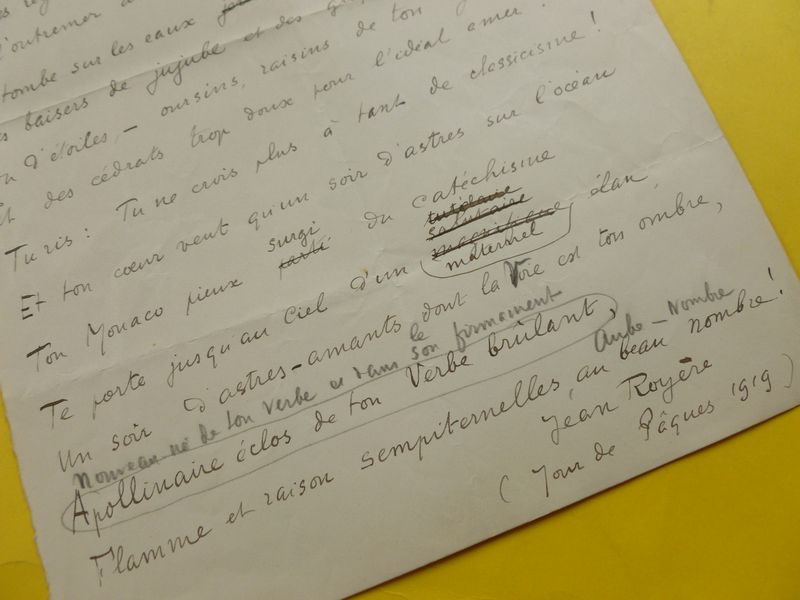 l'outremer
tombe sur les eaux
baisers de jujube et des
d'étoiles, - oursins, raisins de ton
des cédrats trop doux pour l'idéal amer !
Tu ris : Tu ne crois plus à tant de classicisme !
Et ton cœur veut qu'un soir d'astres sur l'océan
surgi
Ton Monaco pieux parti du catéchisme
tutélaire
salutaire
magnifique
Te porte jusqu'au Ciel d'un maternel élan
Un soir d'astres-amants dont la Voie est ton ombre,
Nouveau né de ton verbe et dans le son firmament
Apollinaire éclos de ton Verbe brûlant,
Aube-Nombre
Flamme et raison sempiternelles, au beau nombre !
Jean Royère
( Jour de Pâques 1919 )